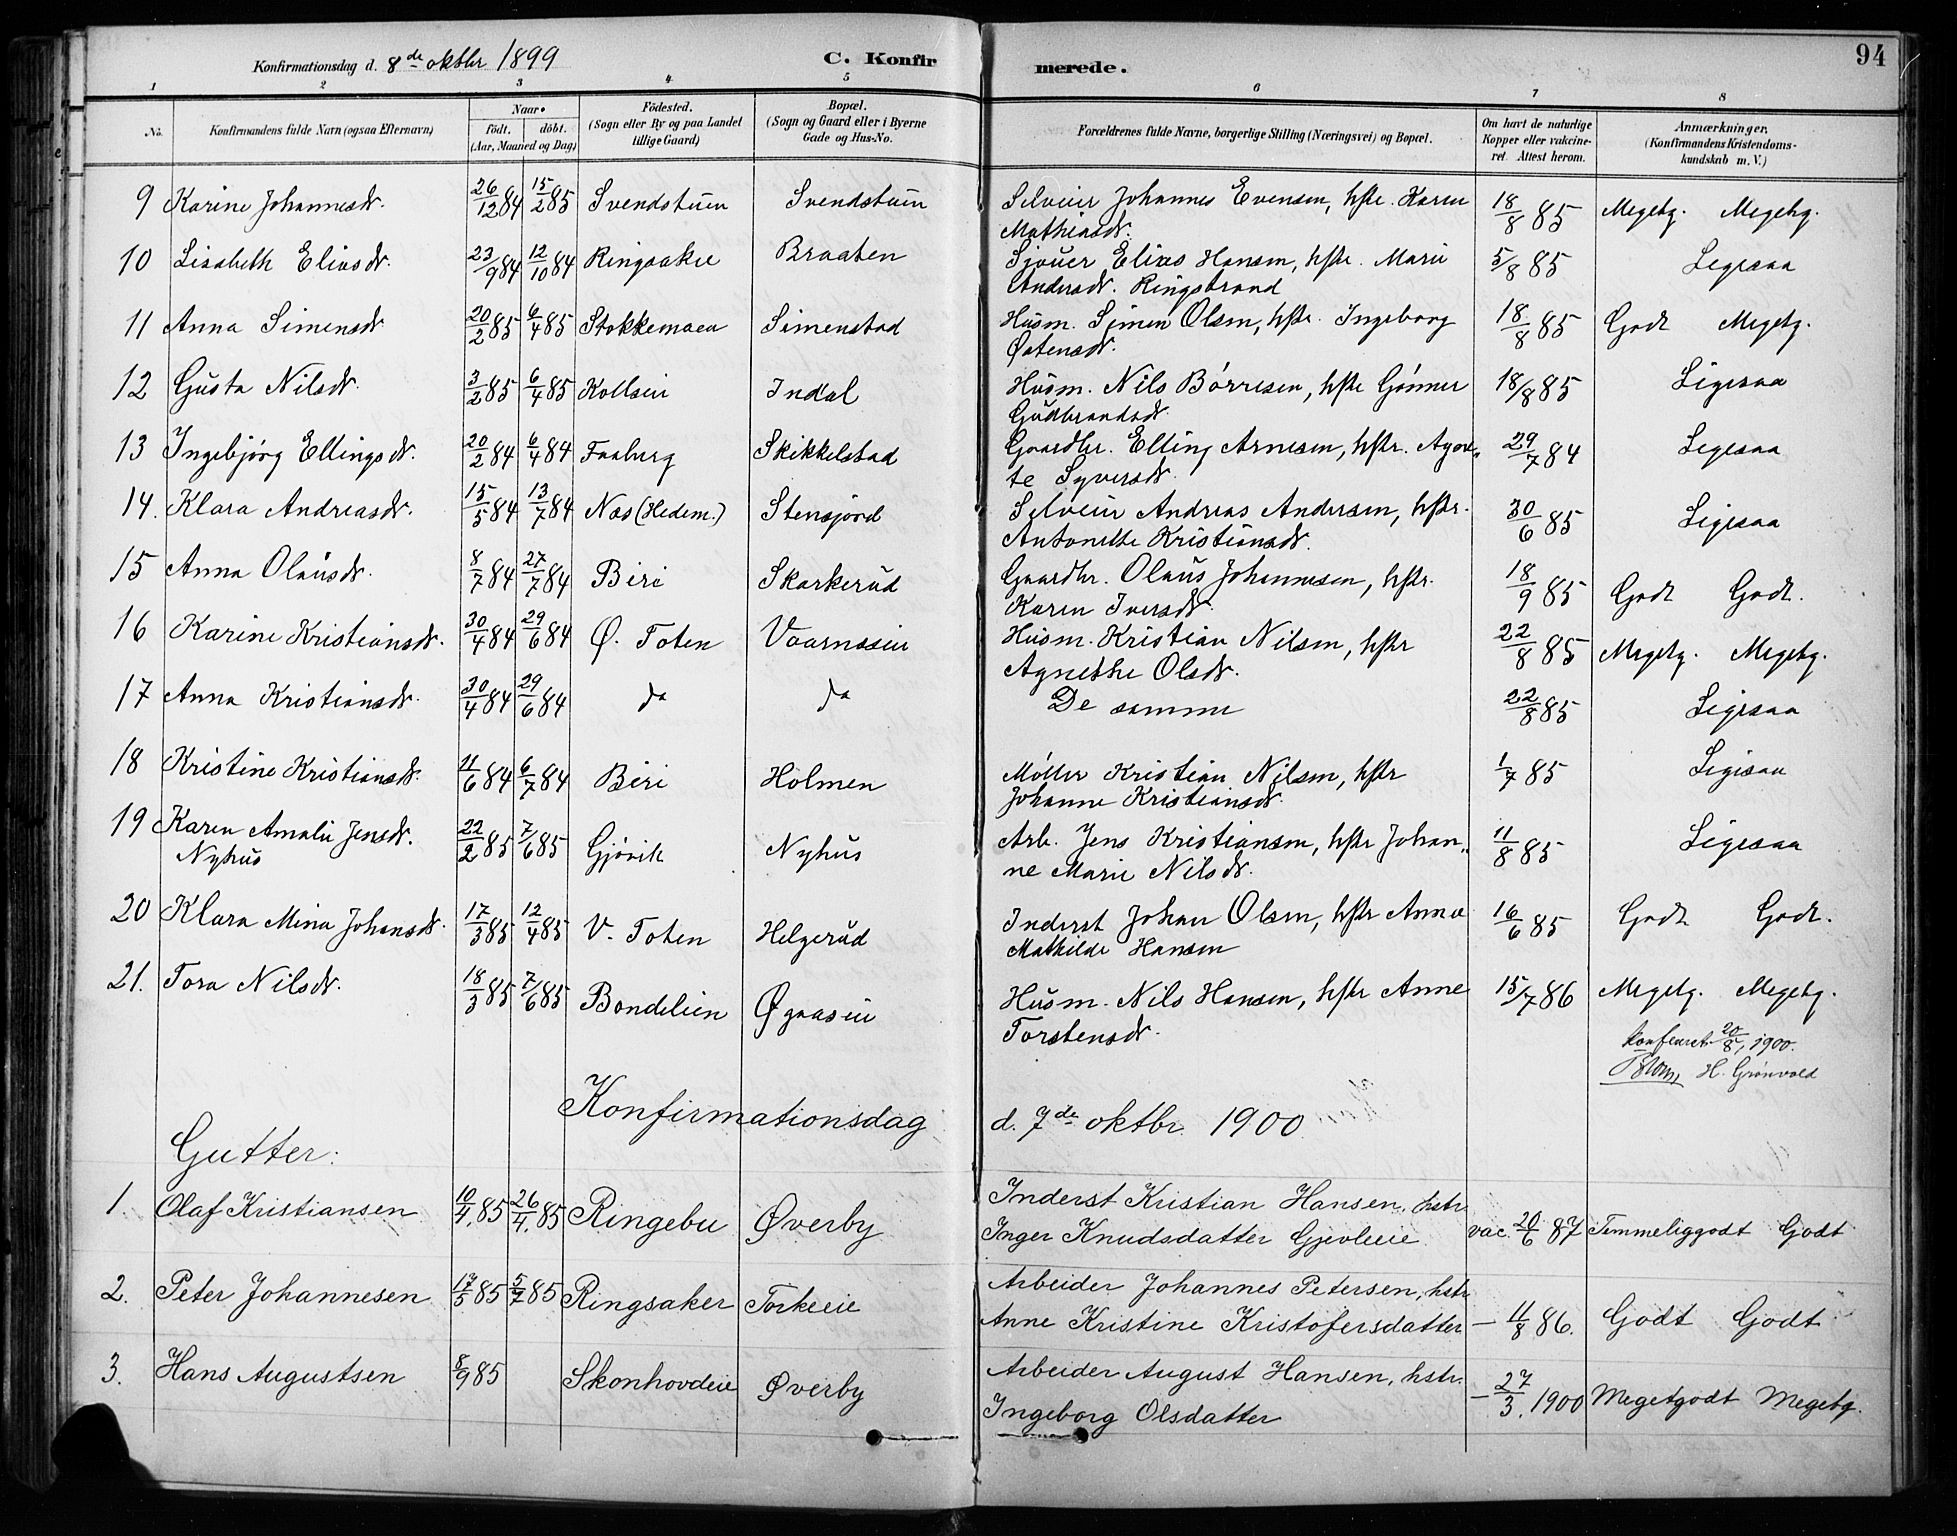 Konfirmationsdag d. 8de oktbr 1899 C. Konfirmerede. 94
1 2 3 4 5 6 7 8
No. Konfirmandens fulde Navn (ogsaa Efternavn) Naar födt. döbt. (Aar, Maaned og Dag) Födested. (Sogn eller By og paa Landet tillige Gaard) Bopæl. (Sogn og Gaard eller i Byerne Gade og Hus-No. Forældrenes fulde Navne, borgerlige Stilling (Næringsvei) og Bopæl. Om havt de naturlige Kopper eller vakcineret. Attest herom. Anmærkninger. (Konfirmandens Kristendomskundskab m. V.)
9 Karine Johannesdr. 26/12 84 15/2 85 Svendstuen Svendstuen Selveier Johannes Evensen, hstr. Karen Mathiasdr. 18/8 85 Megetg. Megetg.
10 Lisabeth Eliasdr. 23/9 84 12/10 84 Ringsaker Braaten Elias Hansen, hstr. Marie Andersdr. Ringstrand 5/8 85 Ligesaa
11 Anna Simensdr. 20/2 85 6/4 85 Stokkemoen Simenstad Husm. Simen Olsen, hstr. Ingeborg Østensdr. 18/8 85 Godt Megetg.
12 Gusta Nilsdr. 3/2 85 6/4 85 Kollseie Indal Husm. Nils Børresen, hstr Gunner Gudbrandsdr. 18/8 85 Ligesaa
13 Ingebjørg Ellingsdr. 20/2 84 6/4 84 Faaberg Skikkelstad Gaardbr. Elling Arnesen, hstr. Agate Syversdr. 29/7 84 Ligesaa
14. Klara Andreasdr. 15/5 84 13/7 84 Næs (Hedem.) Stensjord Selveier Andreas Andersen, hstr. Antonette Kristiansdr. 30/6 85 Ligesaa
15 Anna Olausdr. 8/7 84 27/7 84 Biri Skarkerud Gaardbr. Olaus Johannesen, hstr. Karen Iversdr. 18/9 85 Godt Godt.
16 Karine Kristiansdr. 30/4 84 29/6 84 Ø. Toten Vaarnæseie Husm. Kristian Nilsen, hstr Agnethe Olsdr. 22/8 85 Megetg. Megetg.
17 Anna Kristiansdr. 30/4 84 29/6 84 do do De samme 22/8 85 Ligesaa
18 Kristine Kristiansdr. 11/6 84 6/7 84 Biri Holmen Møller Kristian Nilsen, hstr Johanne Kristiansdr. 1/7 85 Ligesaa
19 Karen Amalie Jensdr. Nyhus 22/2 85 7/6 85 Gjøvik Nyhus Arb. Jens Kristiansen, hstr Johanne Marie Nilsdr. 11/8 85 Ligesaa
20 Klara Mina Johansdr. 17/3 85 12/4 85 V. Toten Helgerud Inderst Johan Olsen, hstr Anna Mathilde Hansen 16/6 85 Godt Godt.
21. Tora Nilsdr. 18/3 85 7/6 85 Bondelien Øgaaseie Husm. Nils Hansen, hstr Anne Torstensdr. 15/7 86 Megetg. Megetg.
Konferert 20/8 1900.
H. Grønvold
Konfirmationsdag d. 7de oktbr. 1900
Gutter:
1. Olaf Kristiansen 10/4. 85 26/4. 85 Ringebu Øverby Inderst Kristian Hansen, hstr Inger Knudsdatter Gjevleeie vac. 20/6 87 Temmeliggodt Godt
2. Peter Johannesen 17/5 85 5/7 85 Ringsaker Torkeeie Arbeider Johannes Petersen, hstr Anne Kristine Kristofersdatter — 11/8 86. Godt Godt
3. Hans Augustsen 8/9 85 Skonhovdeie Øverby Arbeider August Hansen, hstr. Ingeborg Olsdatter — 27/3. 1900 Megetgodt Megetg.